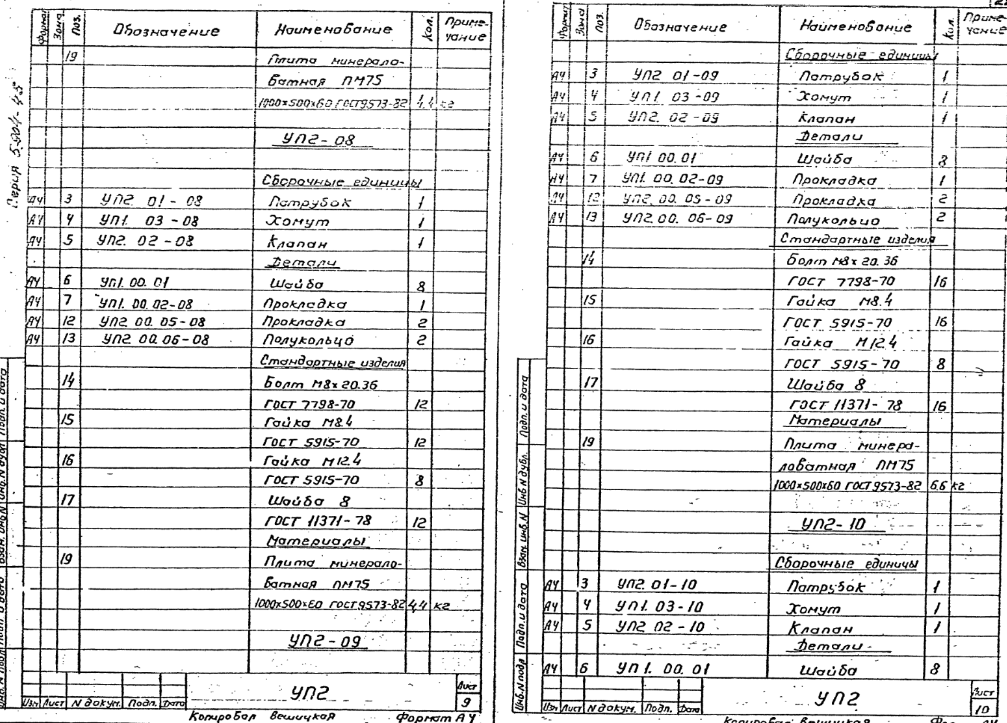 Серия 5.904-45
Формат Зона Поз. Обозначение Наименование Кол. Примечание
19 Плита минерало-
ватная ПМ75
1000×500×60 ГОСТ 9573-82 4,4 кг
УП2-08
Сборочные единицы
А4 3 УП2 01-08 Патрубок 1
А4 4 УП1. 03-08 Хомут 1
А4 5 УП2. 02-08 Клапан 1
Детали
А4 6 УП1. 00. 01 Шайба 8
А4 7 УП1. 00. 02-08 Прокладка 1
А4 12 УП2 00. 05-08 Прокладка 2
А4 13 УП2 00. 06-08 Полукольцо 2
Стандартные изделия
14 Болт М8×20.36
ГОСТ 7798-70 12
15 Гайка М8.4
ГОСТ 5915-70 12
16 Гайка М12.4
ГОСТ 5915-70 8
17 Шайба 8
ГОСТ 11371-78 12
Материалы
19 Плита минерало-
ватная ПМ75
1000×500×60 ГОСТ 9573-82 4,4 кг
УП2-09
Изм. Лист N докум. Подп. Дата
УП2
Лист
9
Копировал Вешицкая Формат А4
Инв. N подл. Подп. и дата Взам. инв. N Инв. N дубл. Подп. и дата
Формат Зона Поз. Обозначение Наименование Кол. Примечание
Сборочные единицы
А4 3 УП2 01-09 Патрубок 1
А4 4 УП1. 03-09 Хомут 1
А4 5 УП2. 02-09 Клапан 1
Детали
А4 6 УП1 00. 01 Шайба 8
А4 7 УП1. 00. 02-09 Прокладка 1
А4 12 УП2. 00. 05-09 Прокладка 2
А4 13 УП2. 00. 06-09 Полукольцо 2
Стандартные изделия
14 Болт М8×20.36
ГОСТ 7798-70 16
15 Гайка М8.4
ГОСТ 5915-70 16
16 Гайка М12.4
ГОСТ 5915-70 8
17 Шайба 8
ГОСТ 11371-78 16
Материалы
19 Плита минера-
ловатная ПМ75
1000×500×60 ГОСТ 9573-82 6,6 кг
УП2-10
Сборочные единицы
А4 3 УП2 01-10 Патрубок 1
А4 4 УП1. 03-10 Хомут 1
А4 5 УП2 02-10 Клапан 1
Детали
А4 6 УП1. 00. 01 Шайба 8
Изм. Лист N докум. Подп. Дата
УП2
Лист
10
Копировал Вешицкая
Инв. N подл. Подп. и дата Взам. инв. N Инв. N дубл. Подп. и дата